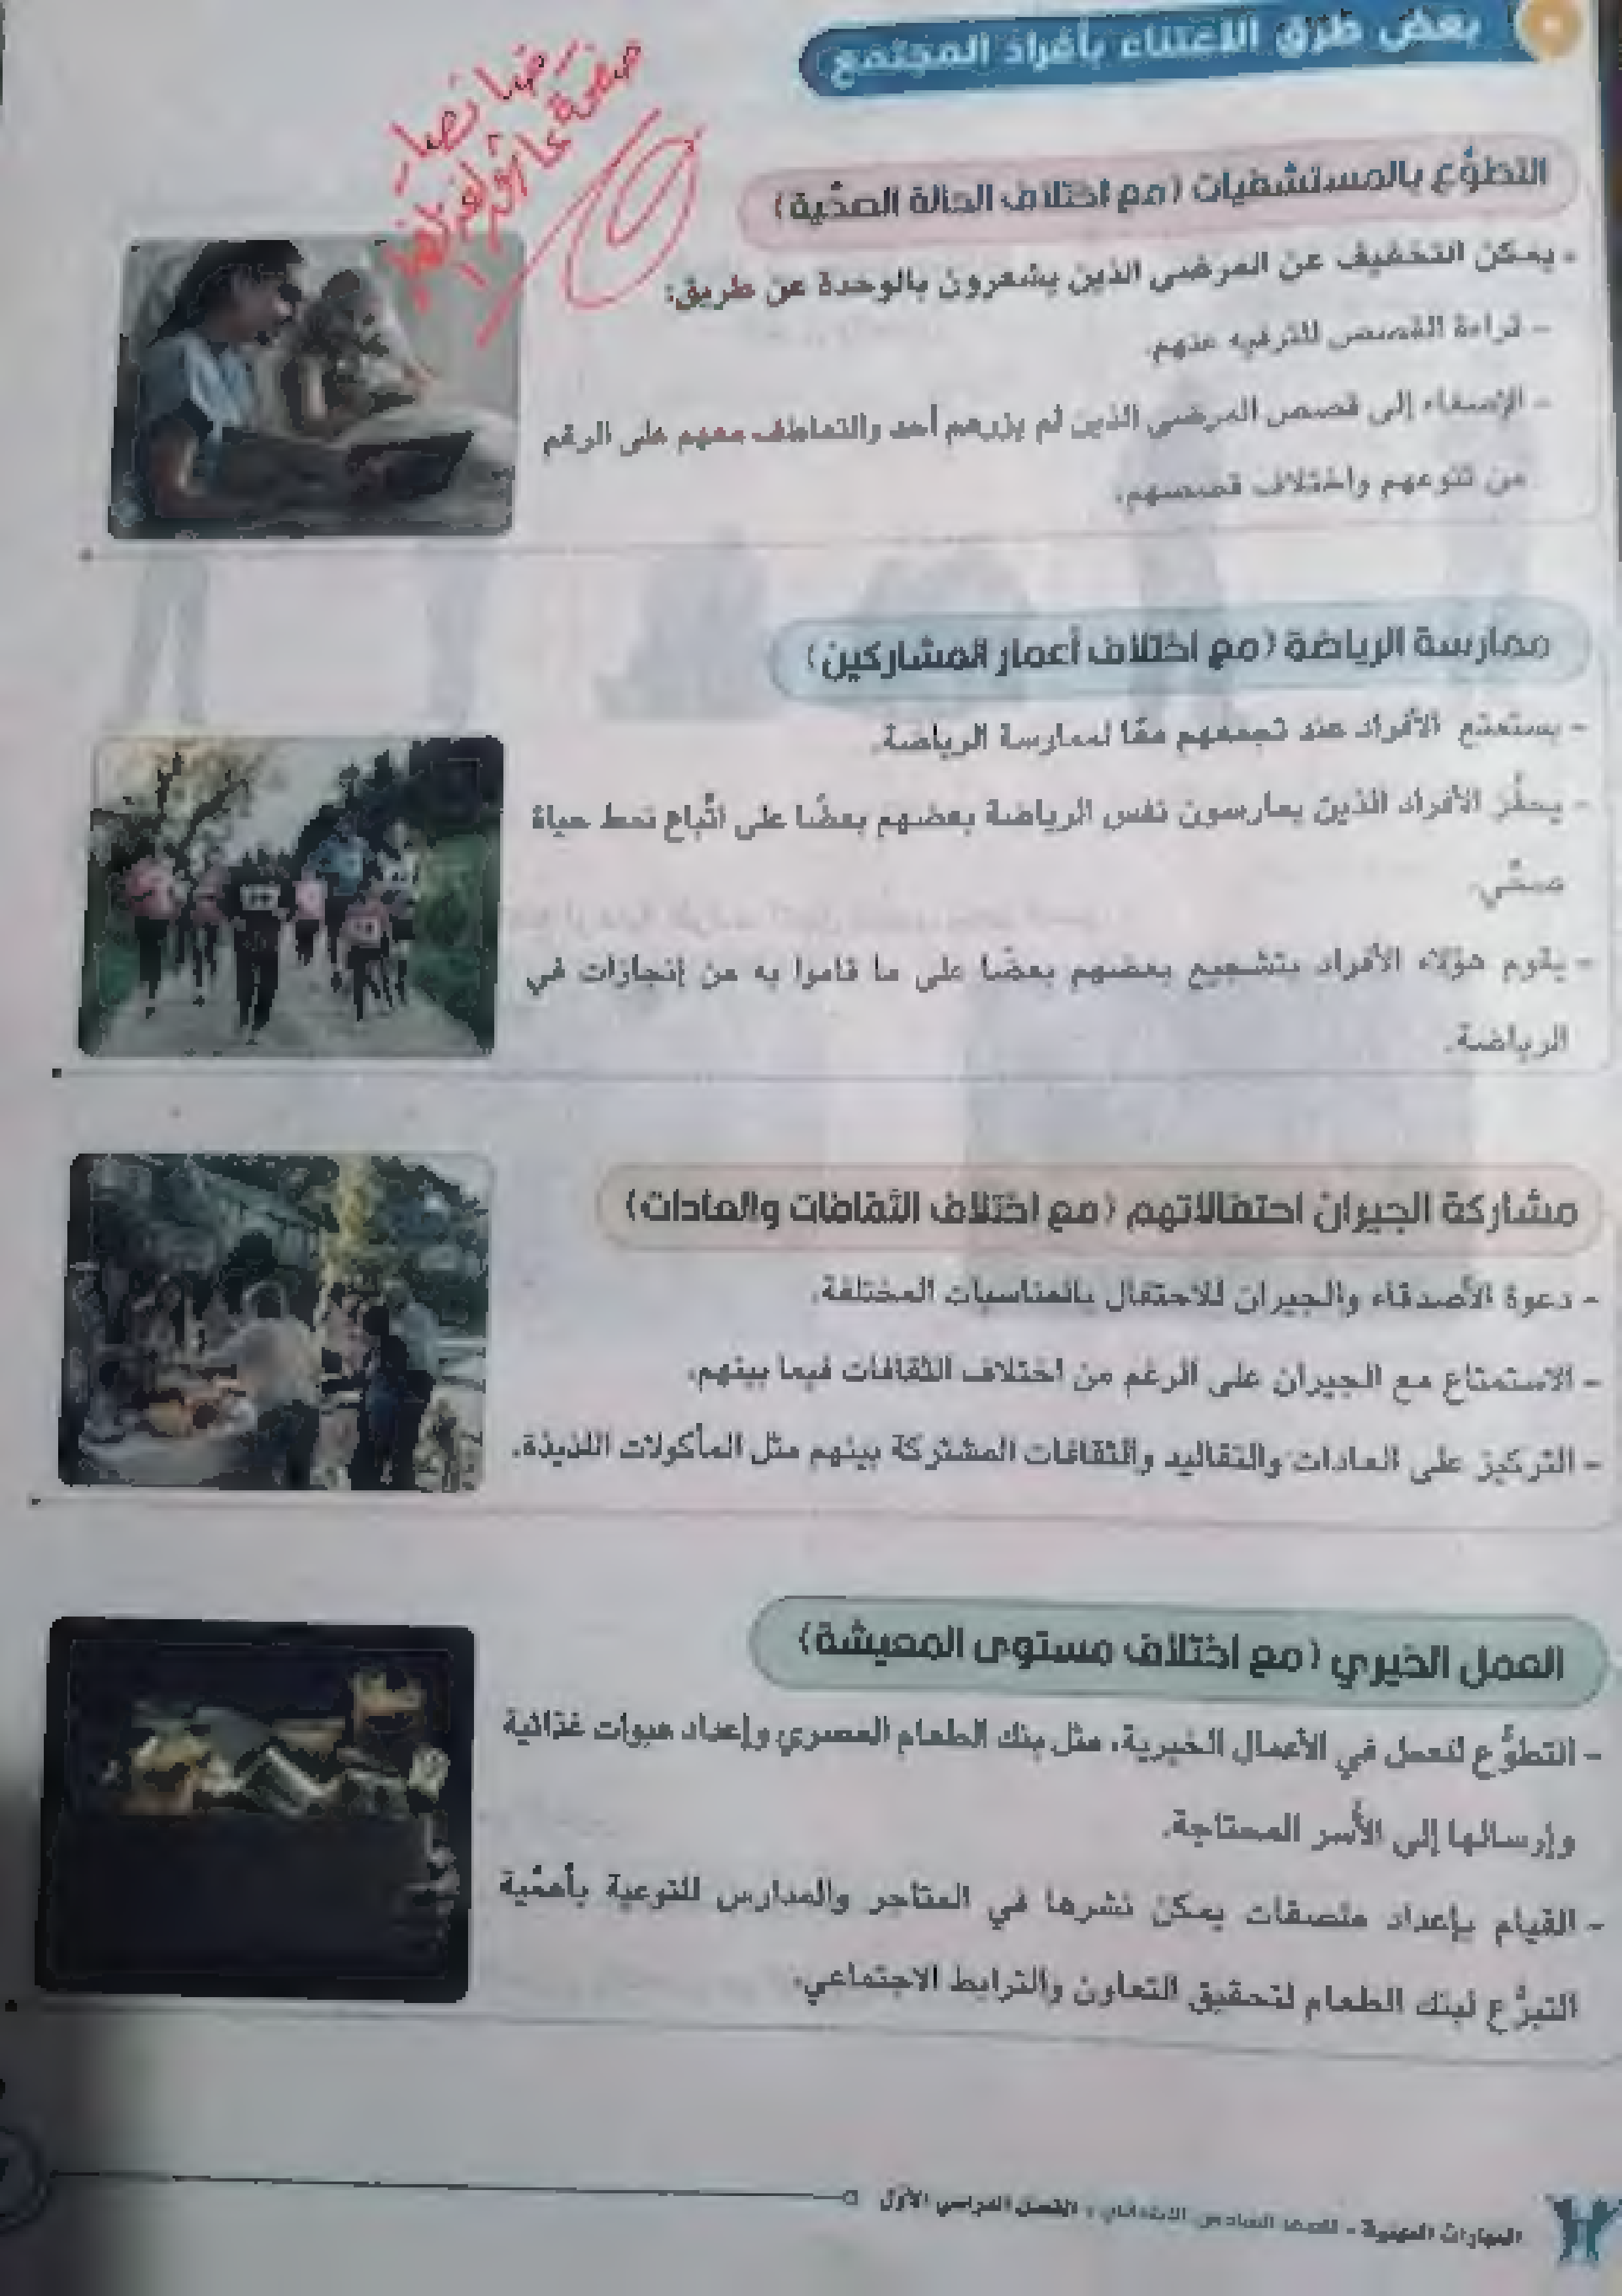 بعض طرق الاعتناء بأفراد المجتمع
التطوُّع بالمستشفيات (مع اختلاف الحالة الصحّية)
- يمكن التخفيف عن المرضى الذين يشعرون بالوحدة عن طريق:
- قراءة القصص للترفيه عنهم.
- الإصغاء إلى قصص المرضى الذين لم يزرهم أحد والتعاطف معهم على الرغم
من تنوعهم واختلاف قصصهم.
ممارسة الرياضة (مع اختلاف أعمار المشاركين)
- يستمتع الأفراد عند تجمعهم معًا لممارسة الرياضة.
- يحفِّز الأفراد الذين يمارسون نفس الرياضة بعضهم بعضًا على اتِّباع نمط حياة
صحّي.
- يقوم هؤلاء الأفراد بتشجيع بعضهم بعضًا على ما قاموا به من إنجازات في
الرياضة.
مشاركة الجيران احتفالاتهم (مع اختلاف الثقافات والعادات)
- دعوة الأصدقاء والجيران للاحتفال بالمناسبات المختلفة.
- الاستمتاع مع الجيران على الرغم من اختلاف الثقافات فيما بينهم.
- التركيز على العادات والتقاليد والثقافات المشتركة بينهم مثل المأكولات اللذيذة.
العمل الخيري (مع اختلاف مستوى المعيشة)
- التطوُّع للعمل في الأعمال الخيرية، مثل بنك الطعام المصري وإعداد عبوات غذائية
وإرسالها إلى الأُسر المحتاجة.
- القيام بإعداد ملصقات يمكن نشرها في المتاجر والمدارس للتوعية بأهمّية
التبرُّع لبنك الطعام لتحقيق التعاون والترابط الاجتماعي.
المهارات المهنية - للصف السادس الابتدائي - الفصل الدراسي الأول